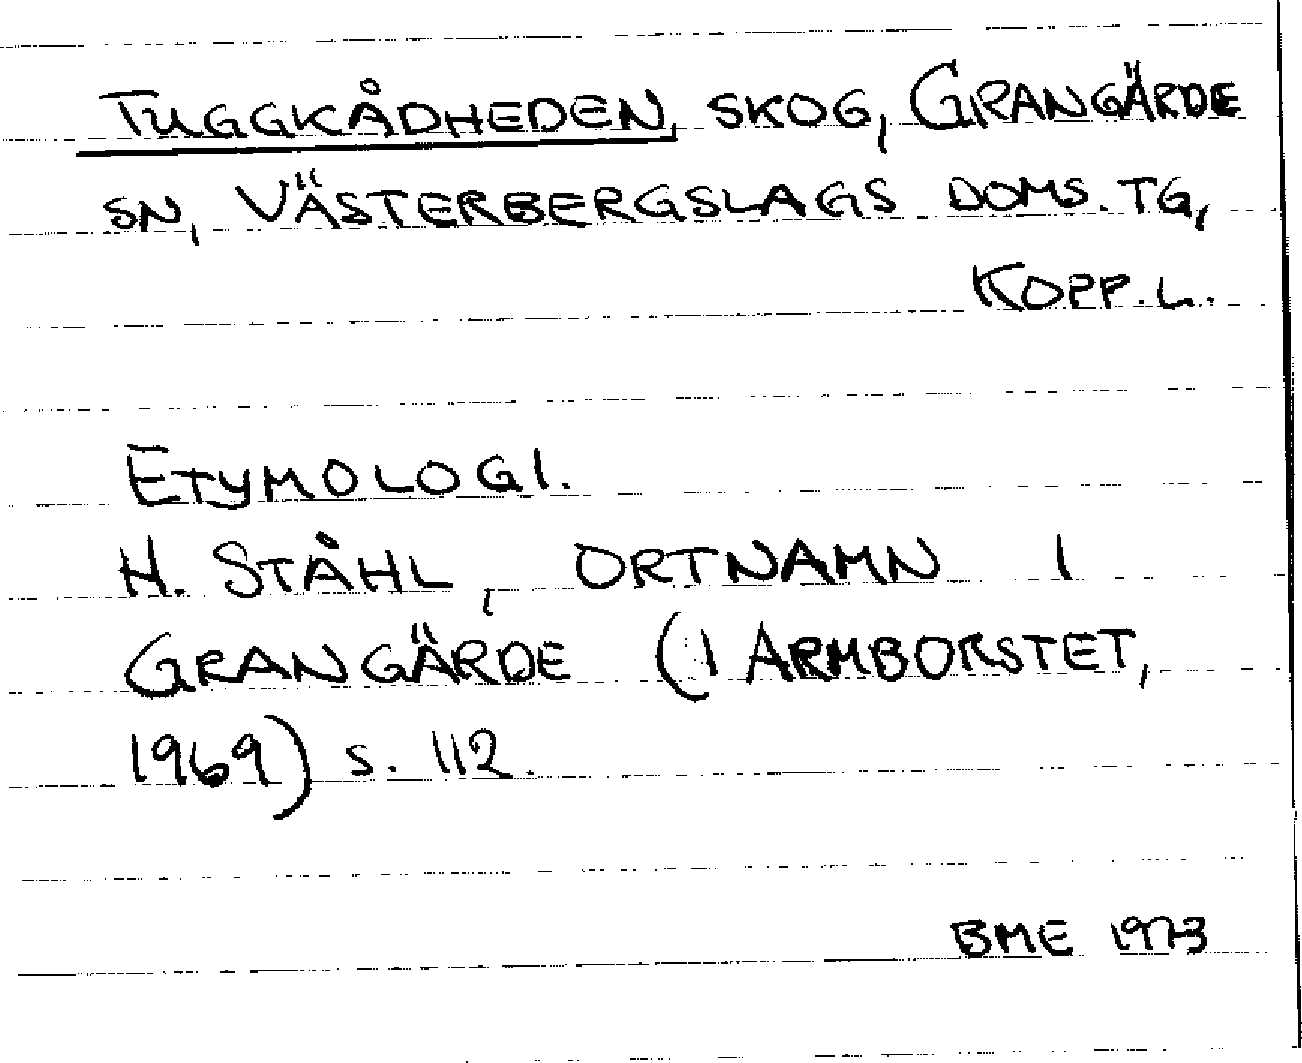 TUGGKÅDHEDEN, SKOG, GRANGÄRDE
SN, VÄSTERBERGSLAGS DOMS. TG,
KOPP. L.
ETYMOLOGI.
H. STÅHL, ORTNAMN I
GRANGÄRDE (I ARMBORSTET,
1969) S. 112.
BME 1973